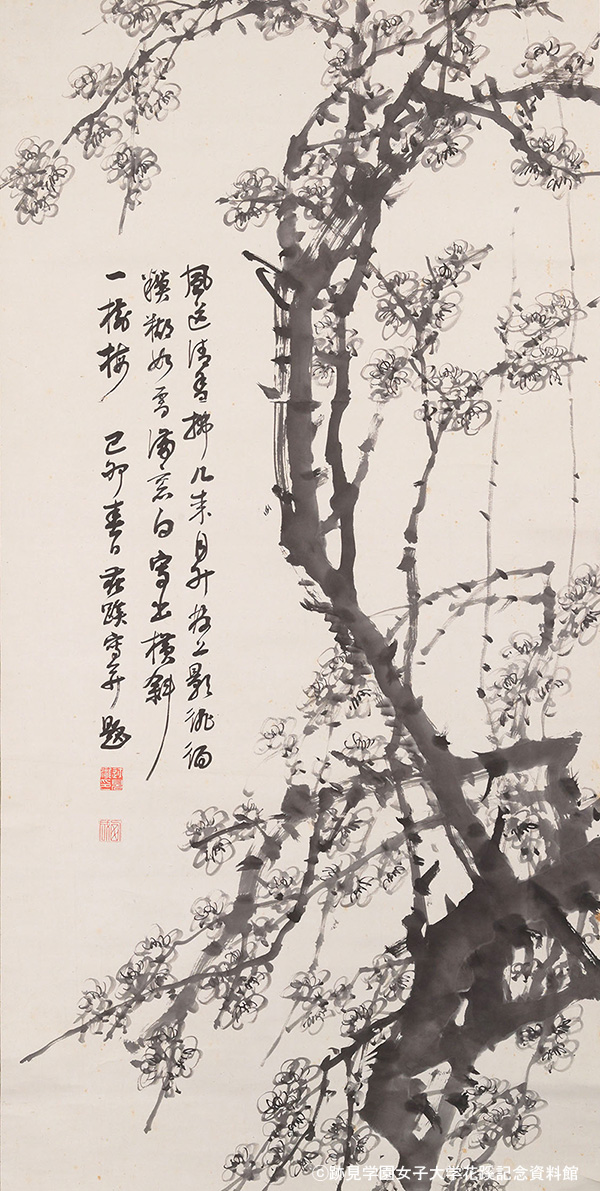 風送清香拂几来月升枝上影徘徊
糢糊如雪満窓白寫出横斜
一樹梅　己卯春日花蹊寫并題
©跡見学園女子大学花蹊記念資料館